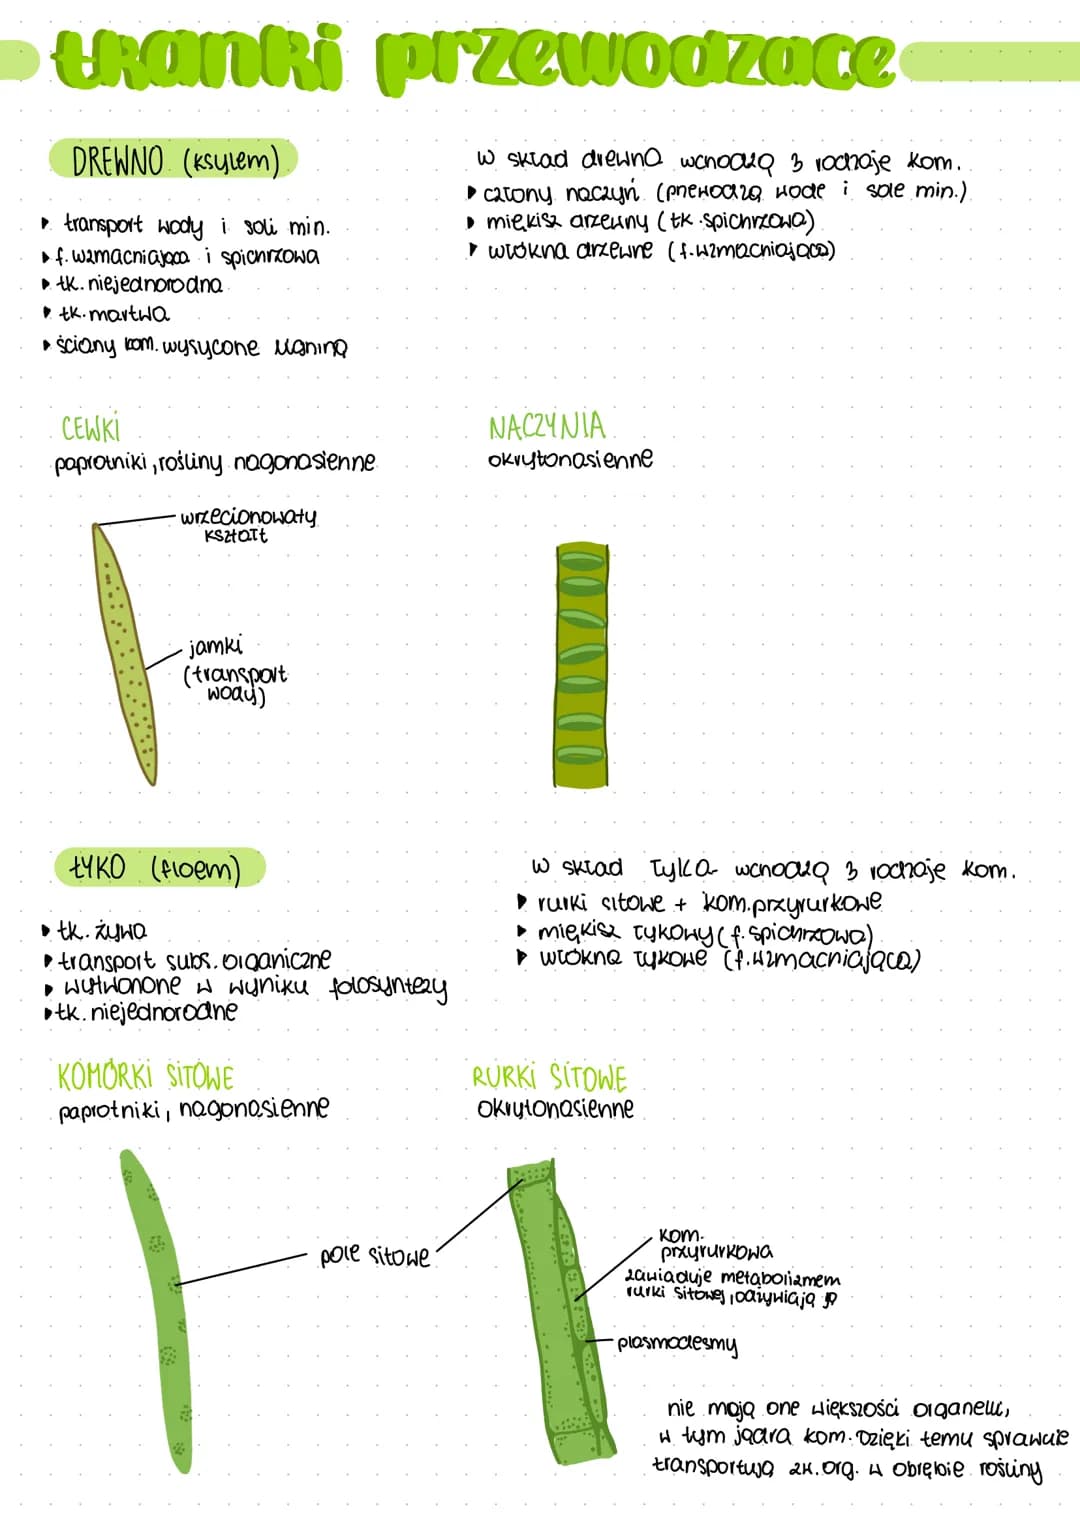 tkanki przewodzące
DREWNO (ksylem)
▸ transport wody i soli min.
▸ f. wzmacniająca i spichrzowa
▸ tk. niejednorodna
▸ tk. martwa
▸ ściany kom. wysycone ligniną
w skład drewna wchodzą 3 rodzaje kom.
▸ człony naczyń (przewodzą wodę i sole min.)
▸ miękisz drzewny (tk. spichrzowa)
▸ włókna drzewne (f. wzmacniająca)
CEWKI
paprotniki, rośliny nagonasienne
wrzecionowaty
kształt
jamki
(transport
wody)
NACZYNIA
okrytonasienne
ŁYKO (floem)
▸ tk. żywa
▸ transport subs. organiczne
▸ wytworzone w wyniku fotosyntezy
▸ tk. niejednorodne
w skład łyka wchodzą 3 rodzaje kom.
▸ rurki sitowe + kom. przyrurkowe
▸ miękisz łykowy (f. spichrzowa)
▸ włókna łykowe (f. wzmacniająca)
KOMÓRKI SITOWE
paprotniki, nagonasienne
RURKI SITOWE
okrytonasienne
pole sitowe
kom.
przyrurkowa
zawiaduje metabolizmem
rurki sitowej, odżywiają ją
plasmodesmy
nie mają one większości organelli,
w tym jądra kom. Dzięki temu sprawnie
transportują zw. org. w obrębie rośliny